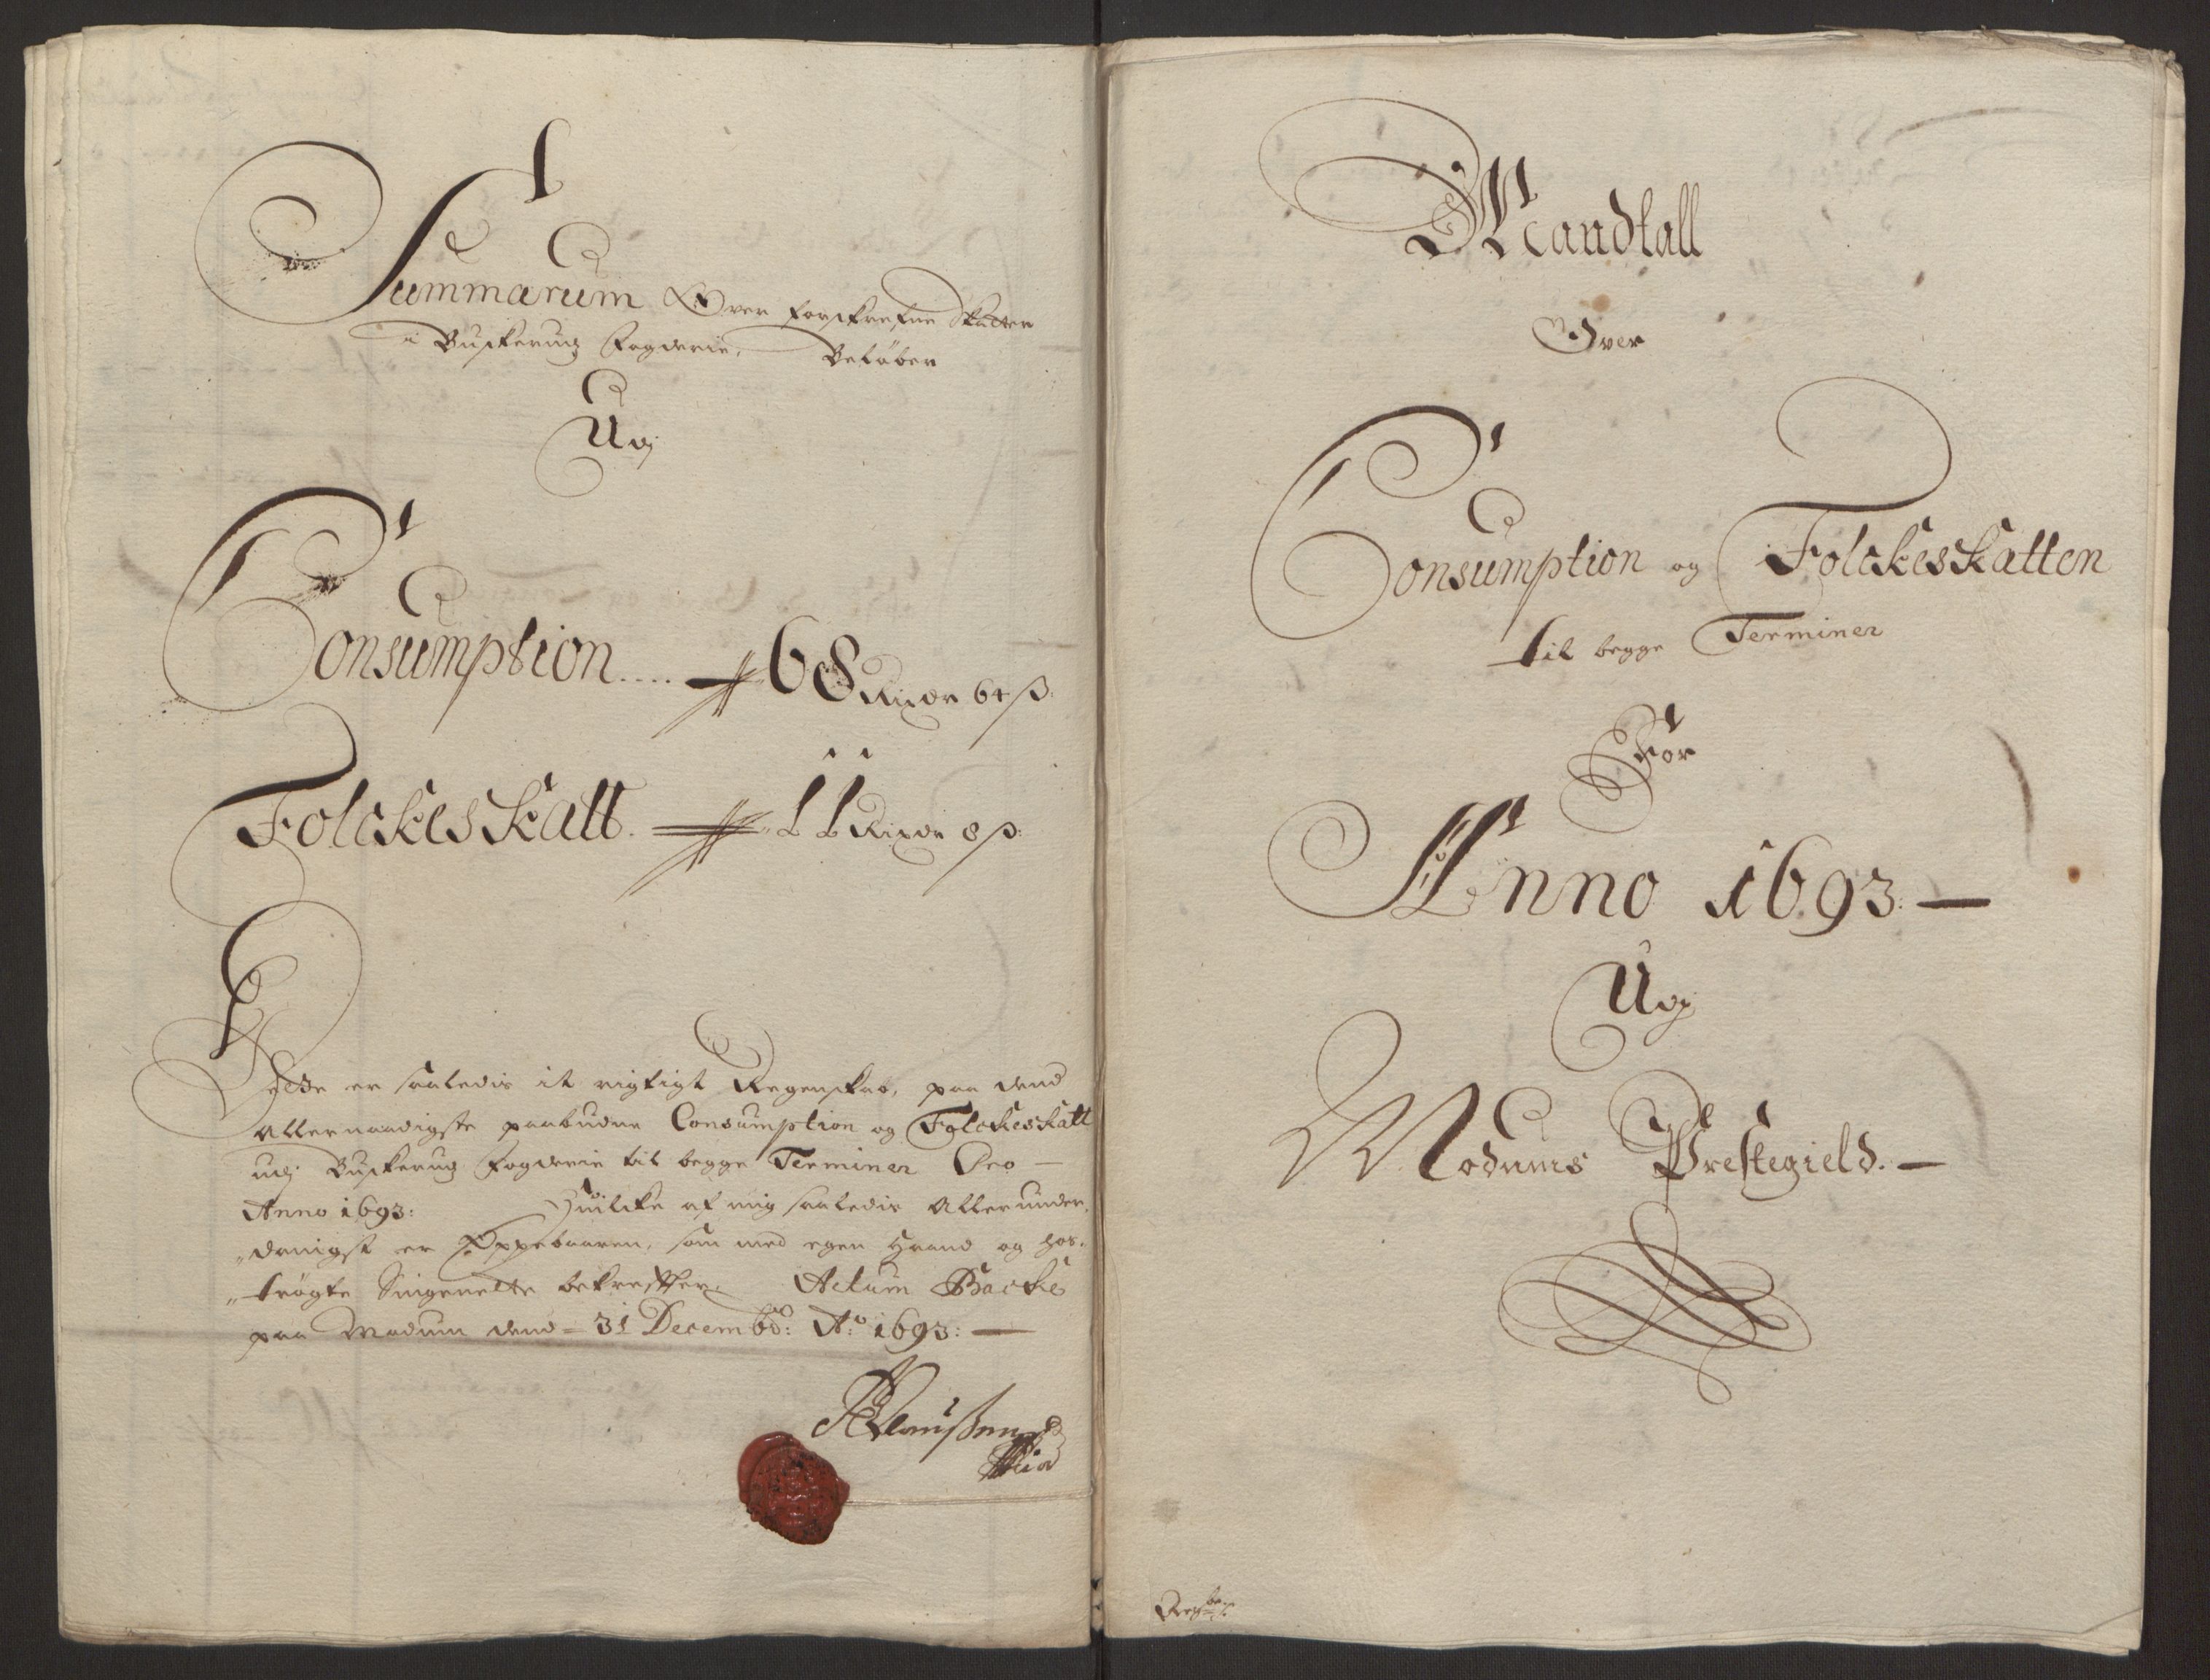 Summarum Ofver forskrefne Skatter
i Buskerud fogderie, Beløber
Udj
Consumption.... 68 Rixdr 64 ß:
Folckeskatt. 11 Rixdr 8 ß:
Dette er saaledis it rigtigt Regenskab, paa dend
Allernaadigste paabudne Consumption og Folckeskatt
udj Buskerud fogderie til begge Terminer Pro —
Anno 1693: Huilcke af mig saaledis Allerunder,
„danigst er Oppebaaren, som med egen Haand og hos,
„trøgte Signette bekreffter. Actum Backe
paa Modum dend = 31 Decembr: Ao: 1693: —
Mandtall
Ofver
Consumption og Folckeskatten
til begge Terminer
For
Anno 1693. —
Udj
Modums Prestegield. —